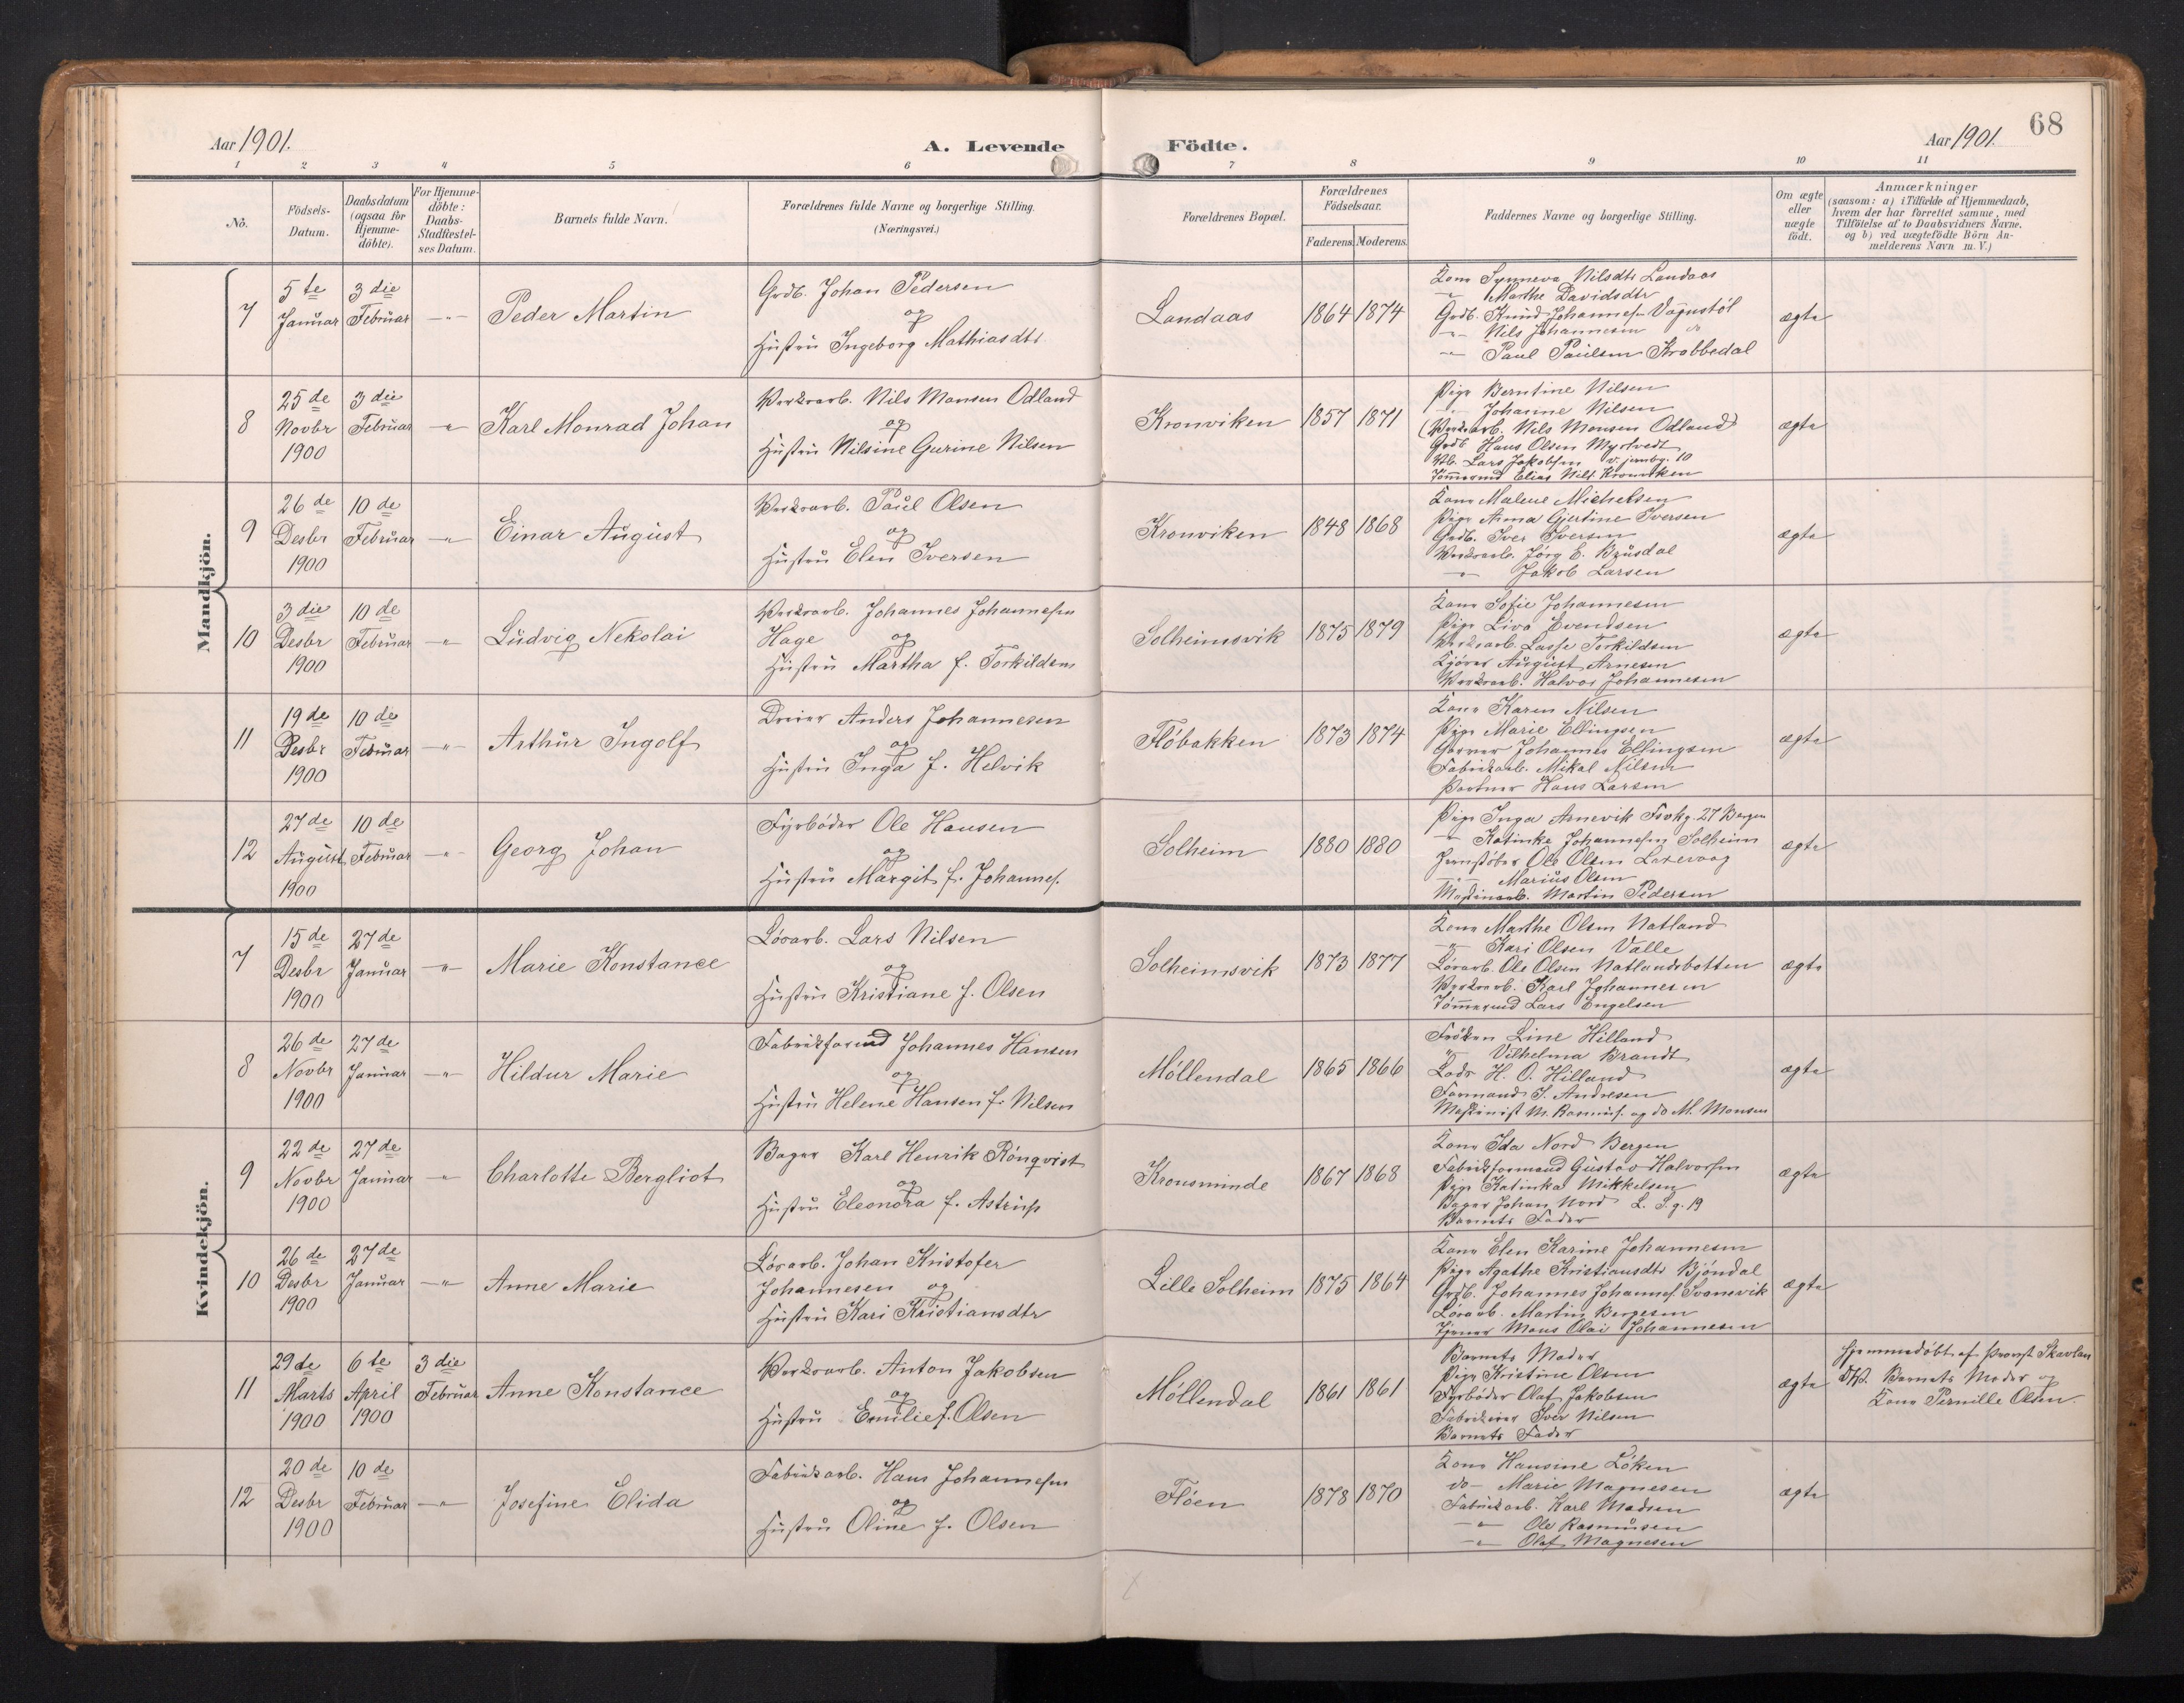 68
Aar 1901. A. Levende Födte. Aar 1901.
1 2 3 4 5 6 7 8 9 10 11
No. Födsels-Datum. Daabsdatum (ogsaa för Hjemme-döbte). For Hjemme-döbte: Daabs-Stadfæstel-ses Datum. Barnets fulde Navn. Forældrenes fulde Navne og borgerlige Stilling. (Næringsvei.) Forældrenes Bopæl. Forældrenes Födselsaar. Faderens. Moderens. Faddernes Navne og borgerlige Stilling. Om ægte eller uægte födt. Anmærkninger (saasom: a) i Tilfælde af Hjemmedaab, hvem der har forrettet samme, med Tilföielse af to Daabsvidners Navne, og b) ved uægtefödte Börn An-melderens Navn m. V.)
Mandkjön.
7 5te Januar 3die Februar -"- Peder Martin
Grdb. Johan Pedersen
og
Hustru Ingeborg Mathiasdtr
Landaas 1864 1874
Kone Synneva Nilsdtr Landaas
-"- Marthe Davidsdtr
Grdb. Knud Johannesen Vognstøl
-"- Nils Johannesen do
-"- Paul Paulsen Krobbedal
ægte
8 25de Novbr 1900 3die Februar -"- Karl Monrad Johan
Værksarb. Nils Monsen Odland
og
Hustru Nilsine Gurine Nilsen
Kronviken 1857 1871
Pige Berntine Nilsen
-"- Johanne Nilsen
(Værksarb. Nils Monsen Odland)
Grdb. Hans Olsen Myrtvedt
Lars Jakobsen
Tømmermd Elias Nils. Kronviken
ægte
9 26de Desbr 1900 10de Februar -"- Einar August
Værksarb. Paul Olsen
og
Hustru Elen Iversen
Kronviken 1848 1868
Kone Malene Michelsen
Pige Anna Gjertine Iversen
Grdb. Iver Iversen
Værksarb. Jørg E. Brusdal
-"- Jakob Larsen
ægte
10 3die Desbr 1900 10de Februar -"- Ludvig Nekolai
Værksarb. Johannes Johannesen
Hage og
Hustru Martha f. Torkildsen
Solheimsvik 1875 1879
Kone Sofie Johannesen
Pige Liva Evendsen
Værksarb. Lasse Torkildsen
Kjører August Arnesen
Værksarb. Halvor Johannesen
ægte
11 19de Desbr 1900 10de Februar -"- Arthur Ingolf
Dreier Anders Johannesen
og
Hustru Inga f. Helvik
Fløbakken 1873 1874
Kone Karen Nilsen
Pige Marie Ellingsen
Garver Johannes Ellingsen
Fabrikarb. Mikal Nilsen
Portner Hans Larsen
ægte
12 27de August 1900 10de Februar -"- Georg Johan
Fyrbøder Ole Hansen
og
Hustru Margit f. Johannes.
Solheim 1880 1880
Pige Inga Arnevik 27 Bergen
-"- Katinka Johannesen Solheim
Jernstøber Ole Olsen Laxevaag
-"- Marius Olsen
Maskinarb. Martin Pedersen
ægte
Kvindekjön.
7 15de Desbr 1900 27de Januar -"- Marie Konstance
Løsarb. Lars Nilsen
og
Hustru Kristiane f. Olsen
Solheimsvik 1873 1877
Kone Marthe Olsen Natland
-"- Kari Olsen Valle
Løsarb. Ole Olsen Natlandsbotten
Værksarb. Karl Johannesen
Tømmermd Lars Engelsen
ægte
8 26de Novbr 1900 27de Januar -"- Hildur Marie
Fabrikformd Johannes Hansen
og
Hustru Helene Hansen f. Nilsen
Møllendal 1865 1866
Frøken Line Hilland
-"- Vilhelma Brandt
Lods H. O. Hilland
Formand S. Andresen
Maskinist M. Rasmus. og do M. Monsen
ægte
9 22de Novbr 1900 27de Januar -"- Charlotte Bergliot
Bager Karl Henrik Rönqvist
og
Hustru Eleonora f. Astrup
Kronsminde 1867 1868
Kone Ida Nord Bergen
Fabrikformand Gustav Halvorsen
Pige Katinka Mikkelsen
Bager Johan Nord L. S. g. 19
Barnets Fader
ægte
10 26de Desbr 1900 27de Januar -"- Anne Marie
Løsarb. Johan Kristofer
Johannesen og
Hustru Kari Kristiansdtr
Lille Solheim 1875 1864
Kone Elen Karine Johannesen
Pige Agathe Kristiansdtr Bjöndal
Grdb. Johannes Johannes. Svensvik
Løsarb. Martin Bergesen
Tjener Mons Olai Johannesen
ægte
11 29de Marts 1900 6te April 1900 3die Februar Anne Konstance
Værksarb. Anton Jakobsen
og
Hustru Emilie f. Olsen
Møllendal 1861 1861
Barnets Moder
Pige Kristine Olsen
Fyrbøder Olaf Jakobsen
Iver Nilsen
Barnets Fader
ægte
Hjemmedøbt af Provst Skavlan
DV. Barnets Moder og
Kone Pernille Olsen.
12 20de Desbr 1900 10de Februar -"- Josefine Elida
Fabrikarb. Hans Johannesen
og
Hustru Oline f. Olsen
Fløen 1878 1870
Kone Hansine Løken
do- Marie Magnesen
Fabrikarb. Karl Madsen
-"- Ole Rasmusen
-"- Olaf Magnesen
ægte